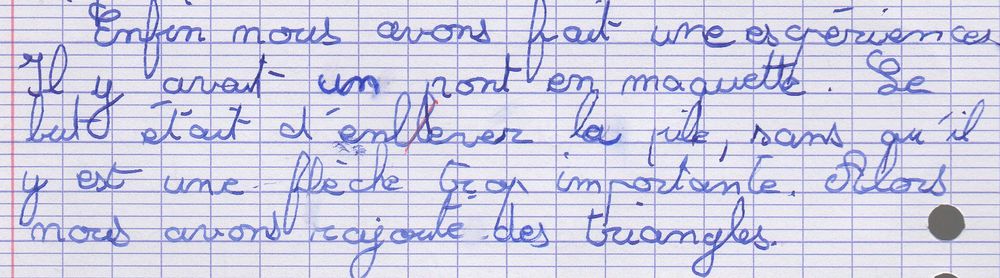 Enfin nous avons fait une espériences
Il y avait un pont en maquette. Le
but était d'enllever la pile, sans qu'il
y est une flèche trop importante. Alors
nous avons rajouté des triangles.